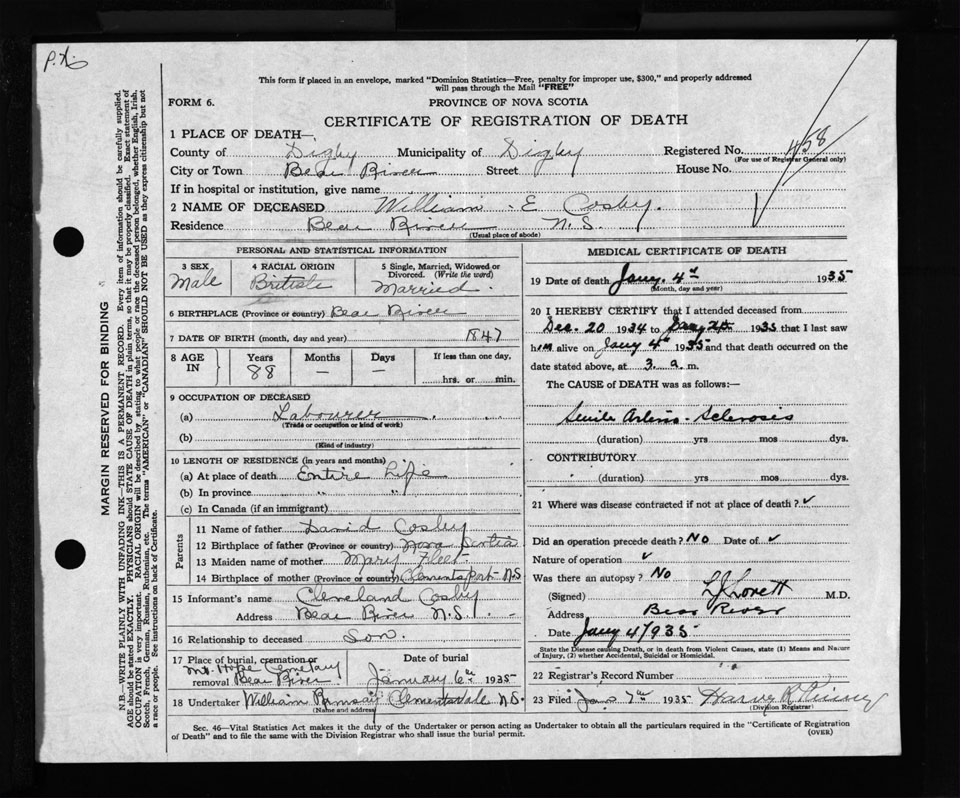 P.X.
This form if placed in an envelope, marked "Dominion Statistics—Free, penalty for improper use, $300," and properly addressed
will pass through the Mail "FREE"
FORM 6.
PROVINCE OF NOVA SCOTIA
CERTIFICATE OF REGISTRATION OF DEATH
1 PLACE OF DEATH—
County of Digby Municipality of Digby Registered No. 458
(For use of Registrar General only)
City or Town Bear River Street House No.
If in hospital or institution, give name
2 NAME OF DECEASED William E Cosby.
Residence Bear River N.S.
(Usual place of abode)
MARGIN RESERVED FOR BINDING
N.B.—WRITE PLAINLY WITH UNFADING INK—THIS IS A PERMANENT RECORD. Every item of information should be carefully supplied.
AGE should be stated EXACTLY. PHYSICIANS should STATE CAUSE OF DEATH in plain terms, so that it may be properly classified. Exact statement of
OCCUPATION is very important. RACIAL ORIGIN will be described by stating to what people or race the deceased person belonged, whether English, Irish,
Scotch, French, German, Russian, Ruthenian, etc. The terms "AMERICAN" or "CANADIAN" SHOULD NOT BE USED as they express citizenship but not
a race or people. See instructions on back of Certificate.
PERSONAL AND STATISTICAL INFORMATION
3 SEX
Male
4 RACIAL ORIGIN
British
5 Single, Married, Widowed or
Divorced. (Write the word)
Married.
6 BIRTHPLACE (Province or country) Bear River
7 DATE OF BIRTH (month, day and year) 1847
8 AGE
IN
Years
88
Months
—
Days
—
If less than one day,
hrs. or min.
9 OCCUPATION OF DECEASED
(a) Labourer
(Trade or occupation or kind of work)
(b)
(Kind of industry)
10 LENGTH OF RESIDENCE (in years and months)
(a) At place of death Entire Life
(b) In province " "
(c) In Canada (if an immigrant)
Parents
11 Name of father David Cosby
12 Birthplace of father (Province or country) Nova Scotia
13 Maiden name of mother Mary Fleet
14 Birthplace of mother (Province or country) Clementsport N.S
15 Informant's name Cleveland Cosby
Address Bear River N.S.
16 Relationship to deceased Son.
17 Place of burial, cremation or
removal
Mt. Hope Cemetary
Bear River
Date of burial
January 6th 1935
18 Undertaker William Clementsvale N.S.
(Name and address)
MEDICAL CERTIFICATE OF DEATH
19 Date of death Jany. 4th 1935
(Month, day and year)
20 I HEREBY CERTIFY that I attended deceased from
Dec. 20 1934 to Jany 4th 1935 that I last saw
him alive on Jany 4th 1935 and that death occurred on the
date stated above, at 3. a. m.
The CAUSE of DEATH was as follows:—
Senile Arterio-Sclerosis
(duration) yrs mos dys.
CONTRIBUTORY
(duration) yrs mos dys.
21 Where was disease contracted if not at place of death? ✓
Did an operation precede death? No Date of ✓
Nature of operation ✓
Was there an autopsy? No
(Signed) L J Lovett M.D.
Address Bear River
Date Jany 4/935
State the Disease causing Death, or in death from Violent Causes, state (1) Means and Nature
of Injury, (2) whether Accidental, Suicidal or Homicidal.
22 Registrar's Record Number
23 Filed Jan 7th 1935 Harry R
(Division Registrar)
Sec. 46—Vital Statistics Act makes it the duty of the Undertaker or person acting as Undertaker to obtain all the particulars required in the "Certificate of Registration
of Death" and to file the same with the Division Registrar who shall issue the burial permit.
(OVER)